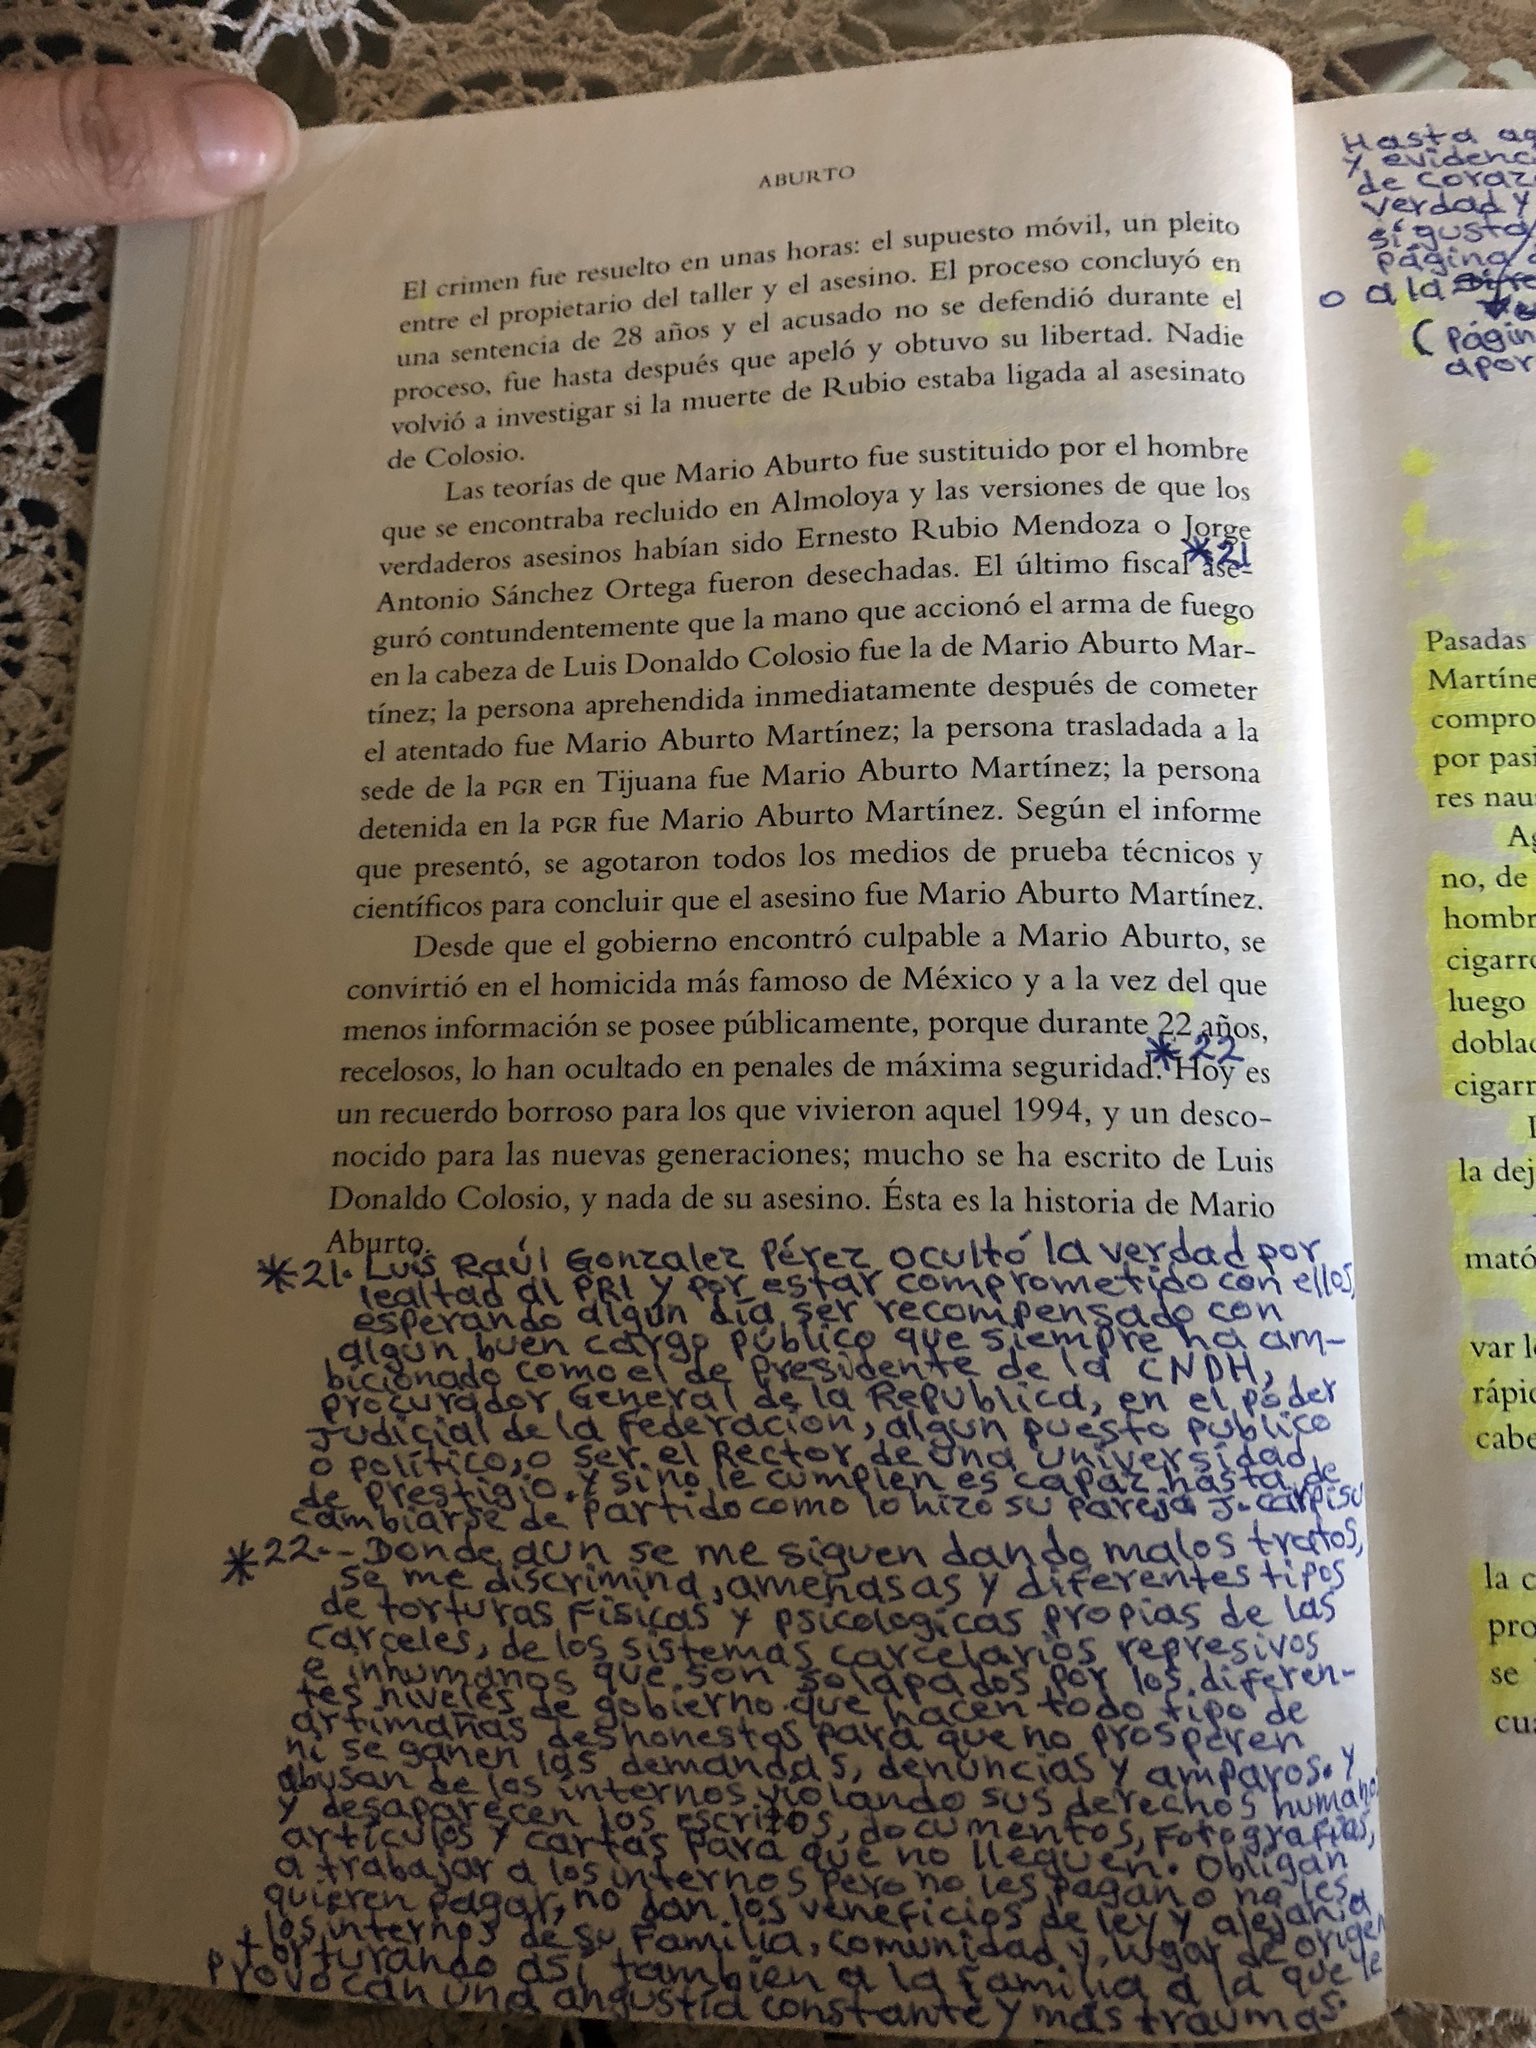 ABURTO
El crimen fue resuelto en unas horas: el supuesto móvil, un pleito
entre el propietario del taller y el asesino. El proceso concluyó en
una sentencia de 28 años y el acusado no se defendió durante el
proceso, fue hasta después que apeló y obtuvo su libertad. Nadie
volvió a investigar si la muerte de Rubio estaba ligada al asesinato
de Colosio.
Las teorías de que Mario Aburto fue sustituido por el hombre
que se encontraba recluido en Almoloya y las versiones de que los
verdaderos asesinos habían sido Ernesto Rubio Mendoza o Jorge
*21
Antonio Sánchez Ortega fueron desechadas. El último fiscal ase-
guró contundentemente que la mano que accionó el arma de fuego
en la cabeza de Luis Donaldo Colosio fue la de Mario Aburto Mar-
tínez; la persona aprehendida inmediatamente después de cometer
el atentado fue Mario Aburto Martínez; la persona trasladada a la
sede de la PGR en Tijuana fue Mario Aburto Martínez; la persona
detenida en la PGR fue Mario Aburto Martínez. Según el informe
que presentó, se agotaron todos los medios de prueba técnicos y
científicos para concluir que el asesino fue Mario Aburto Martínez.
Desde que el gobierno encontró culpable a Mario Aburto, se
convirtió en el homicida más famoso de México y a la vez del que
menos información se posee públicamente, porque durante 22 años,
*22
recelosos, lo han ocultado en penales de máxima seguridad. Hoy es
un recuerdo borroso para los que vivieron aquel 1994, y un desco-
nocido para las nuevas generaciones; mucho se ha escrito de Luis
Donaldo Colosio, y nada de su asesino. Ésta es la historia de Mario
Aburto.
*21. Luis Raúl Gonzalez Pérez ocultó la verdad por
lealtad al PRI y por estar comprometido con ellos,
esperando algún día ser recompensado con
algún buen cargo público que siempre ha am-
bicionado como el de Presidente de la CNDH,
procurador General de la República, en el poder
Judicial de la federación, algún puesto público
o político, o ser el Rector de una universidad
de prestigio. Y si no le cumplen es capaz hasta de
cambiarse de partido como lo hizo su pareja J. Carpiso
*22.- Donde aun se me siguen dando malos tratos,
se me discrimina, amenasas y diferentes tipos
de torturas fisicas y psicologicas propias de las
carceles, de los sistemas carcelarios represivos
e inhumanos que son solapados por los diferen-
tes niveles de gobierno que hacen todo tipo de
artimañas deshonestas para que no prosperen
ni se ganen las demandas, denuncias y amparos. Y
abusan de los internos violando sus derechos humanos
y desaparecen los escritos, documentos, fotografías,
artículos y cartas para que no lleguen. Obligan
a trabajar a los internos pero no les pagan o no les
quieren pagar, no dan los veneficios de ley y alejan a
los internos de su familia, comunidad y lugar de origen
torturando así tambien a la familia a la que le
provocan una angustia constante y más traumas.
Hasta
y
de
verdad y
sí gusta
página
o a la
(págin
apor
Pasadas
Martíne
compro
por pasi
res naus
Ag
no, de
hombr
cigarro
luego
doblad
cigarr
la dej
mató
var l
rápid
cabe
la c
pro
se
cua